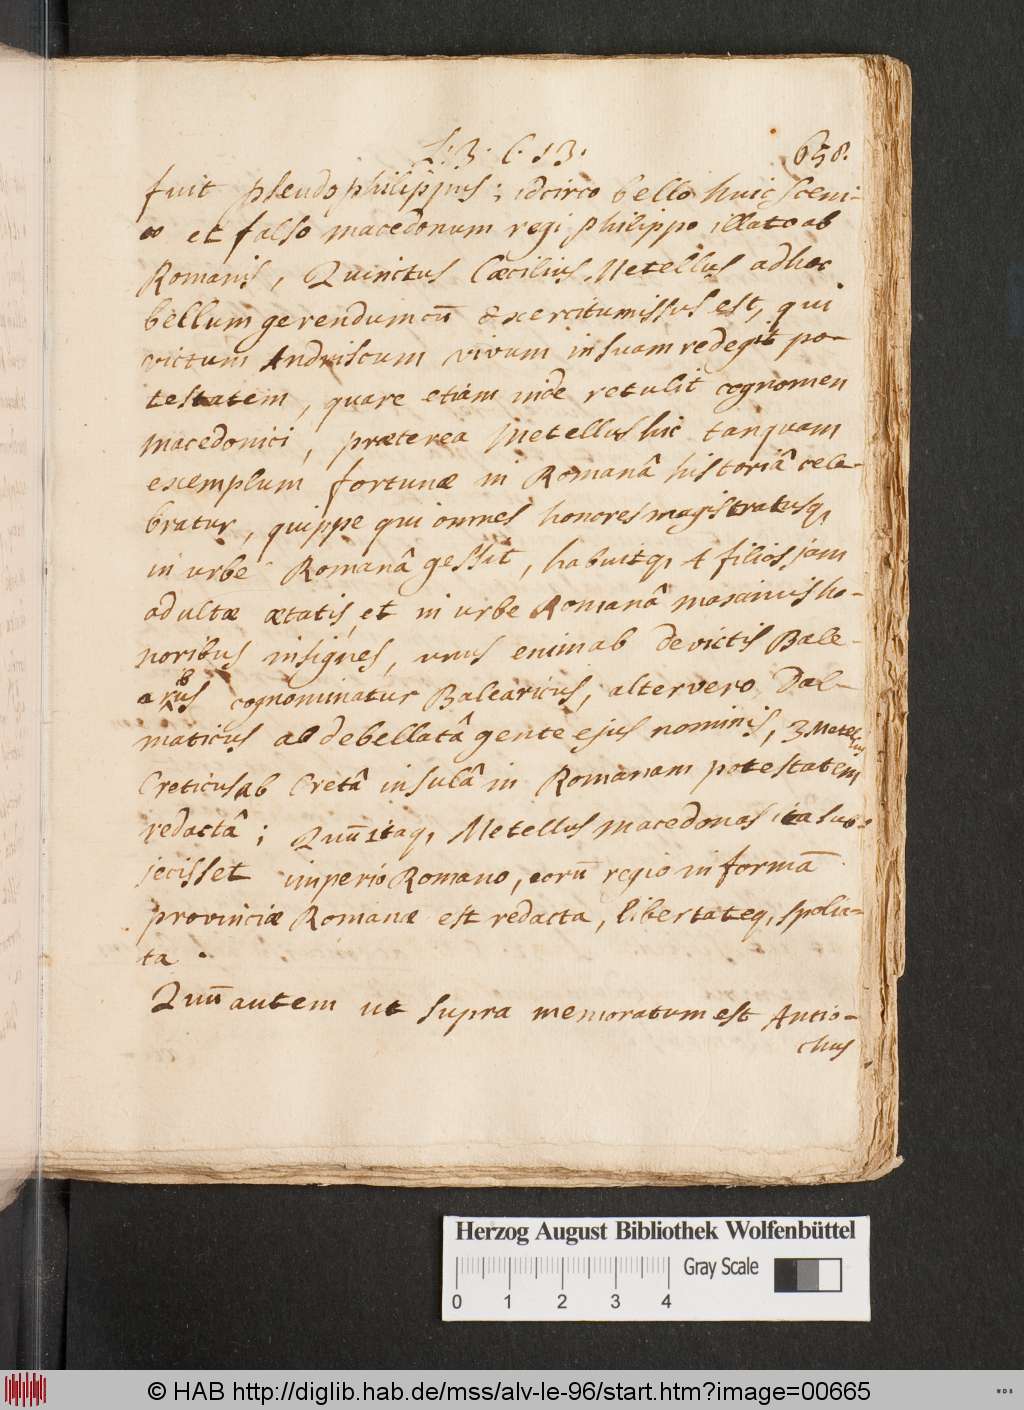 L. 3. C. 13.
658.
fuit pseudophilippus; idcirco bello huic sceni-
co et falso macedonum regi philippo illato ab
Romanis, Quinctus Cæcilius Metellus ad hoc
bellum gerendum cū exercitu missus est, qui
victum Andriscum vivum in suam redegit po-
testatem, quare etiam inde retulit cognomen
macedonici, præterea Metellus hic tanquam
exemplum fortunæ in Romanâ historiâ cele-
bratur, quippe qui omnes honores magistratusq,
in urbe Romanâ gessit, habuitq, 4 filios jam
adultæ ætatis, et in urbe Romanâ maximis ho-
noribus insignes, unus enim ab devictis Bale-
aribus cognominatur Balearicus, alter vero Dal-
maticus ab debellatâ gente ejus nominis, 3 Metellus
Creticus ab Cretâ insulâ in Romanam potestatem
redactâ; Quū itaq, Metellus macedonas ita sub-
jecisset imperio Romano, eorū regio in formā
provinciæ Romanæ est redacta, libertateq, spolia-
ta.
Quū autem ut supra memoratum est Antio-
chus
Herzog August Bibliothek Wolfenbüttel
Gray Scale
0 1 2 3 4
© HAB http://diglib.hab.de/mss/alv-le-96/start.htm?image=00665